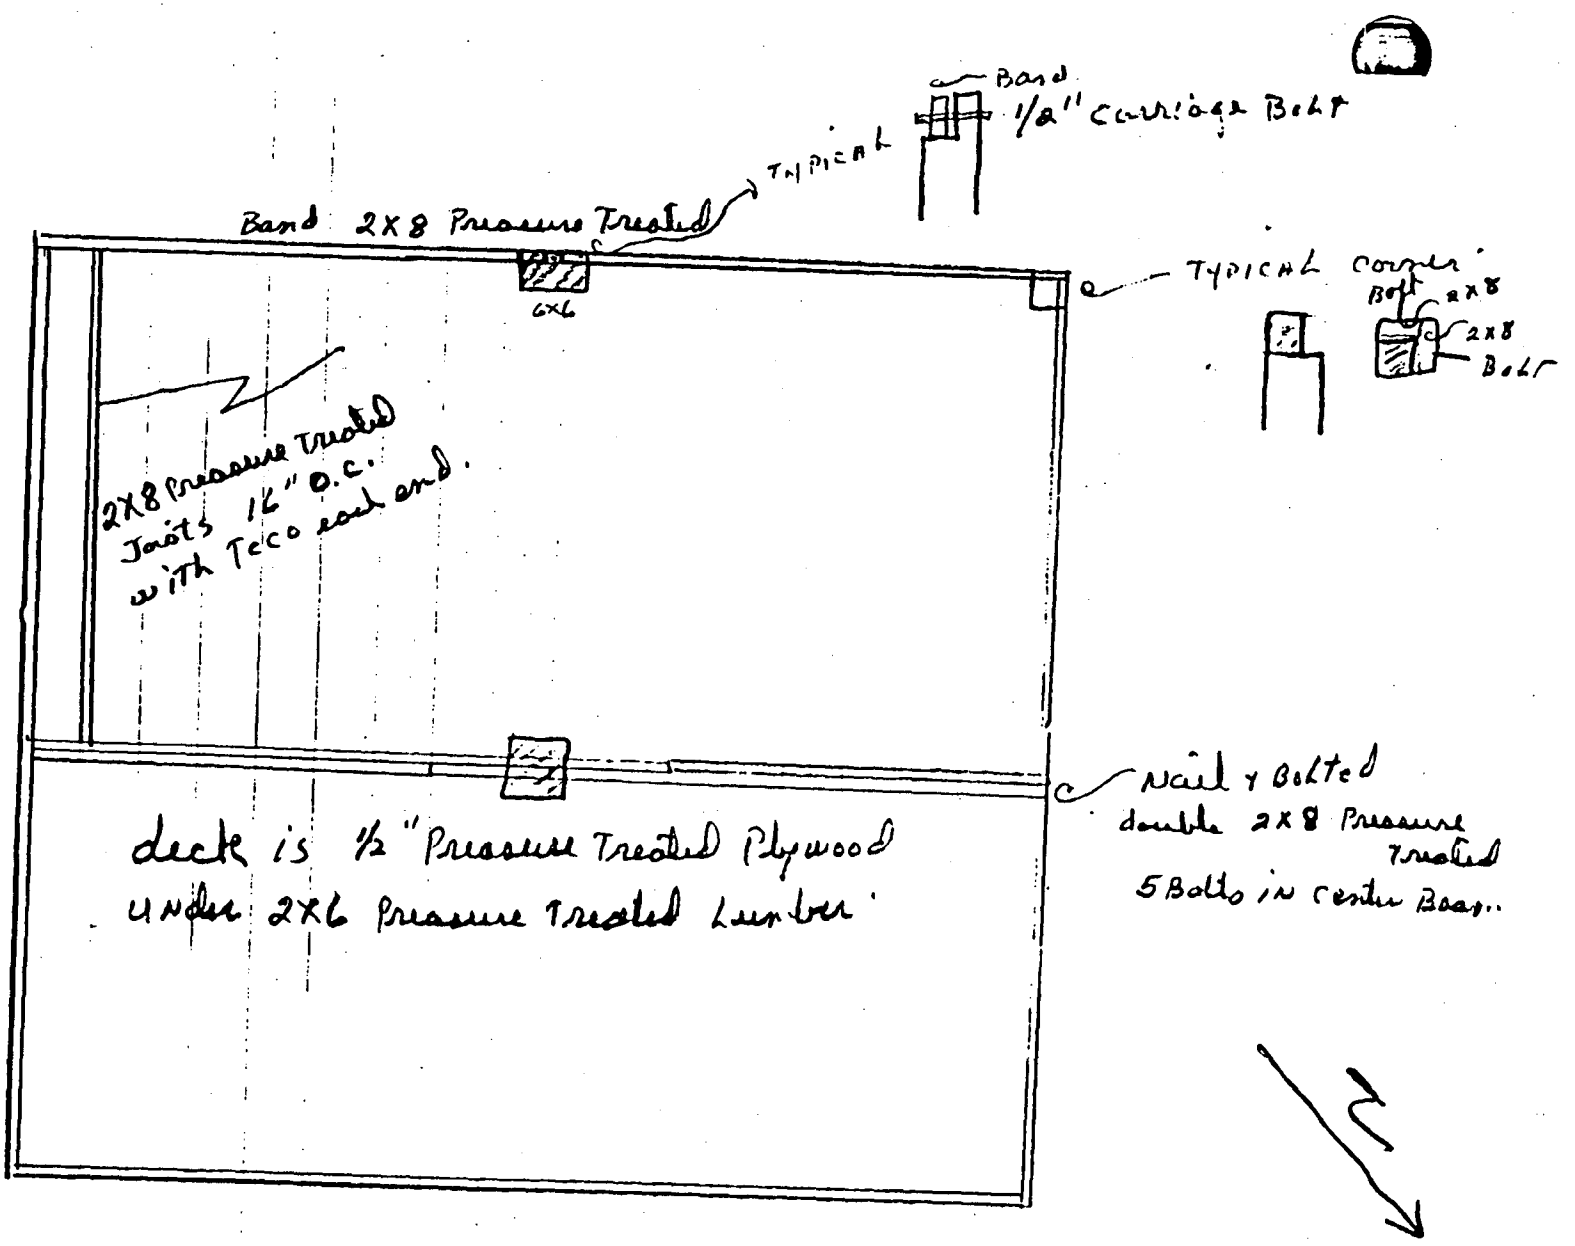 Band
1/2" Carriage Bolt
TYPICAL
Band 2X8 Pressure Treated
6X6
TYPICAL Corner
Bolt
2X8
2X8
Bolt
2X8 Pressure Treated
Joists 16" O.C.
with Teco each end.
Nail & Bolted
double 2X8 Pressure
Treated
5 Bolts in Center Beam.
deck is 1/2" Pressure Treated Plywood
Under 2X6 Pressure Treated Lumber
N